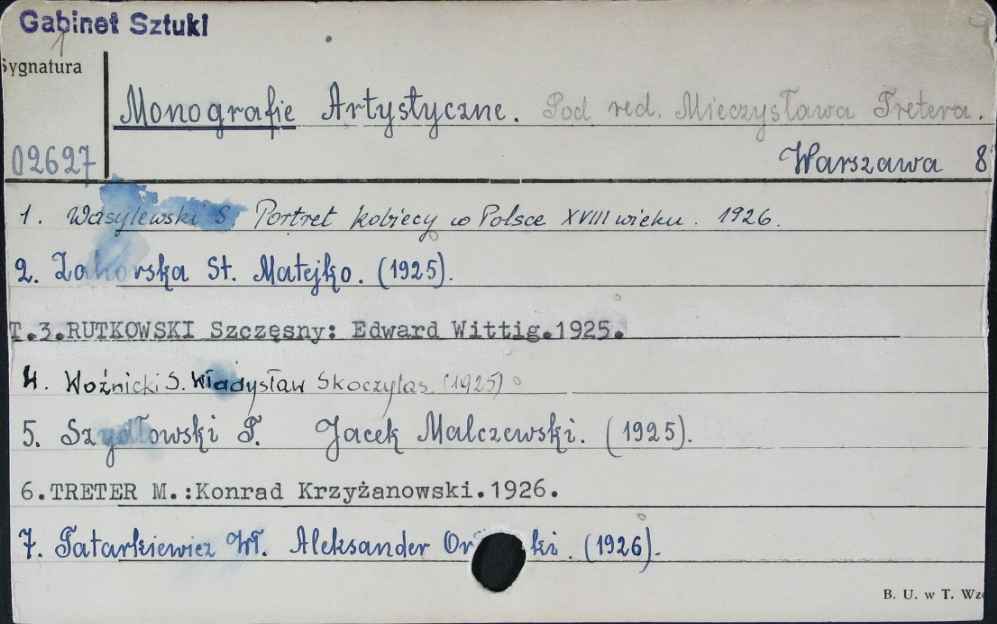 Gabinet Sztuki
Sygnatura
Monografie Artystyczne. Pod red. Mieczysława Tretera.
02627
Warszawa 8°
1. Wasylewski S. Portret kobiecy w Polsce XVIII wieku. 1926.
2. Zahorska St. Matejko. (1925).
T.3.RUTKOWSKI Szczęsny: Edward Wittig.1925.
4. Woźnicki S. Władysław Skoczylas (1925)
5. Szydłowski T. Jacek Malczewski. (1925).
6.TRETER M.:Konrad Krzyżanowski.1926.
7. Tatarkiewicz Wł. Aleksander Or ki. (1926).
B. U. w T. Wzó